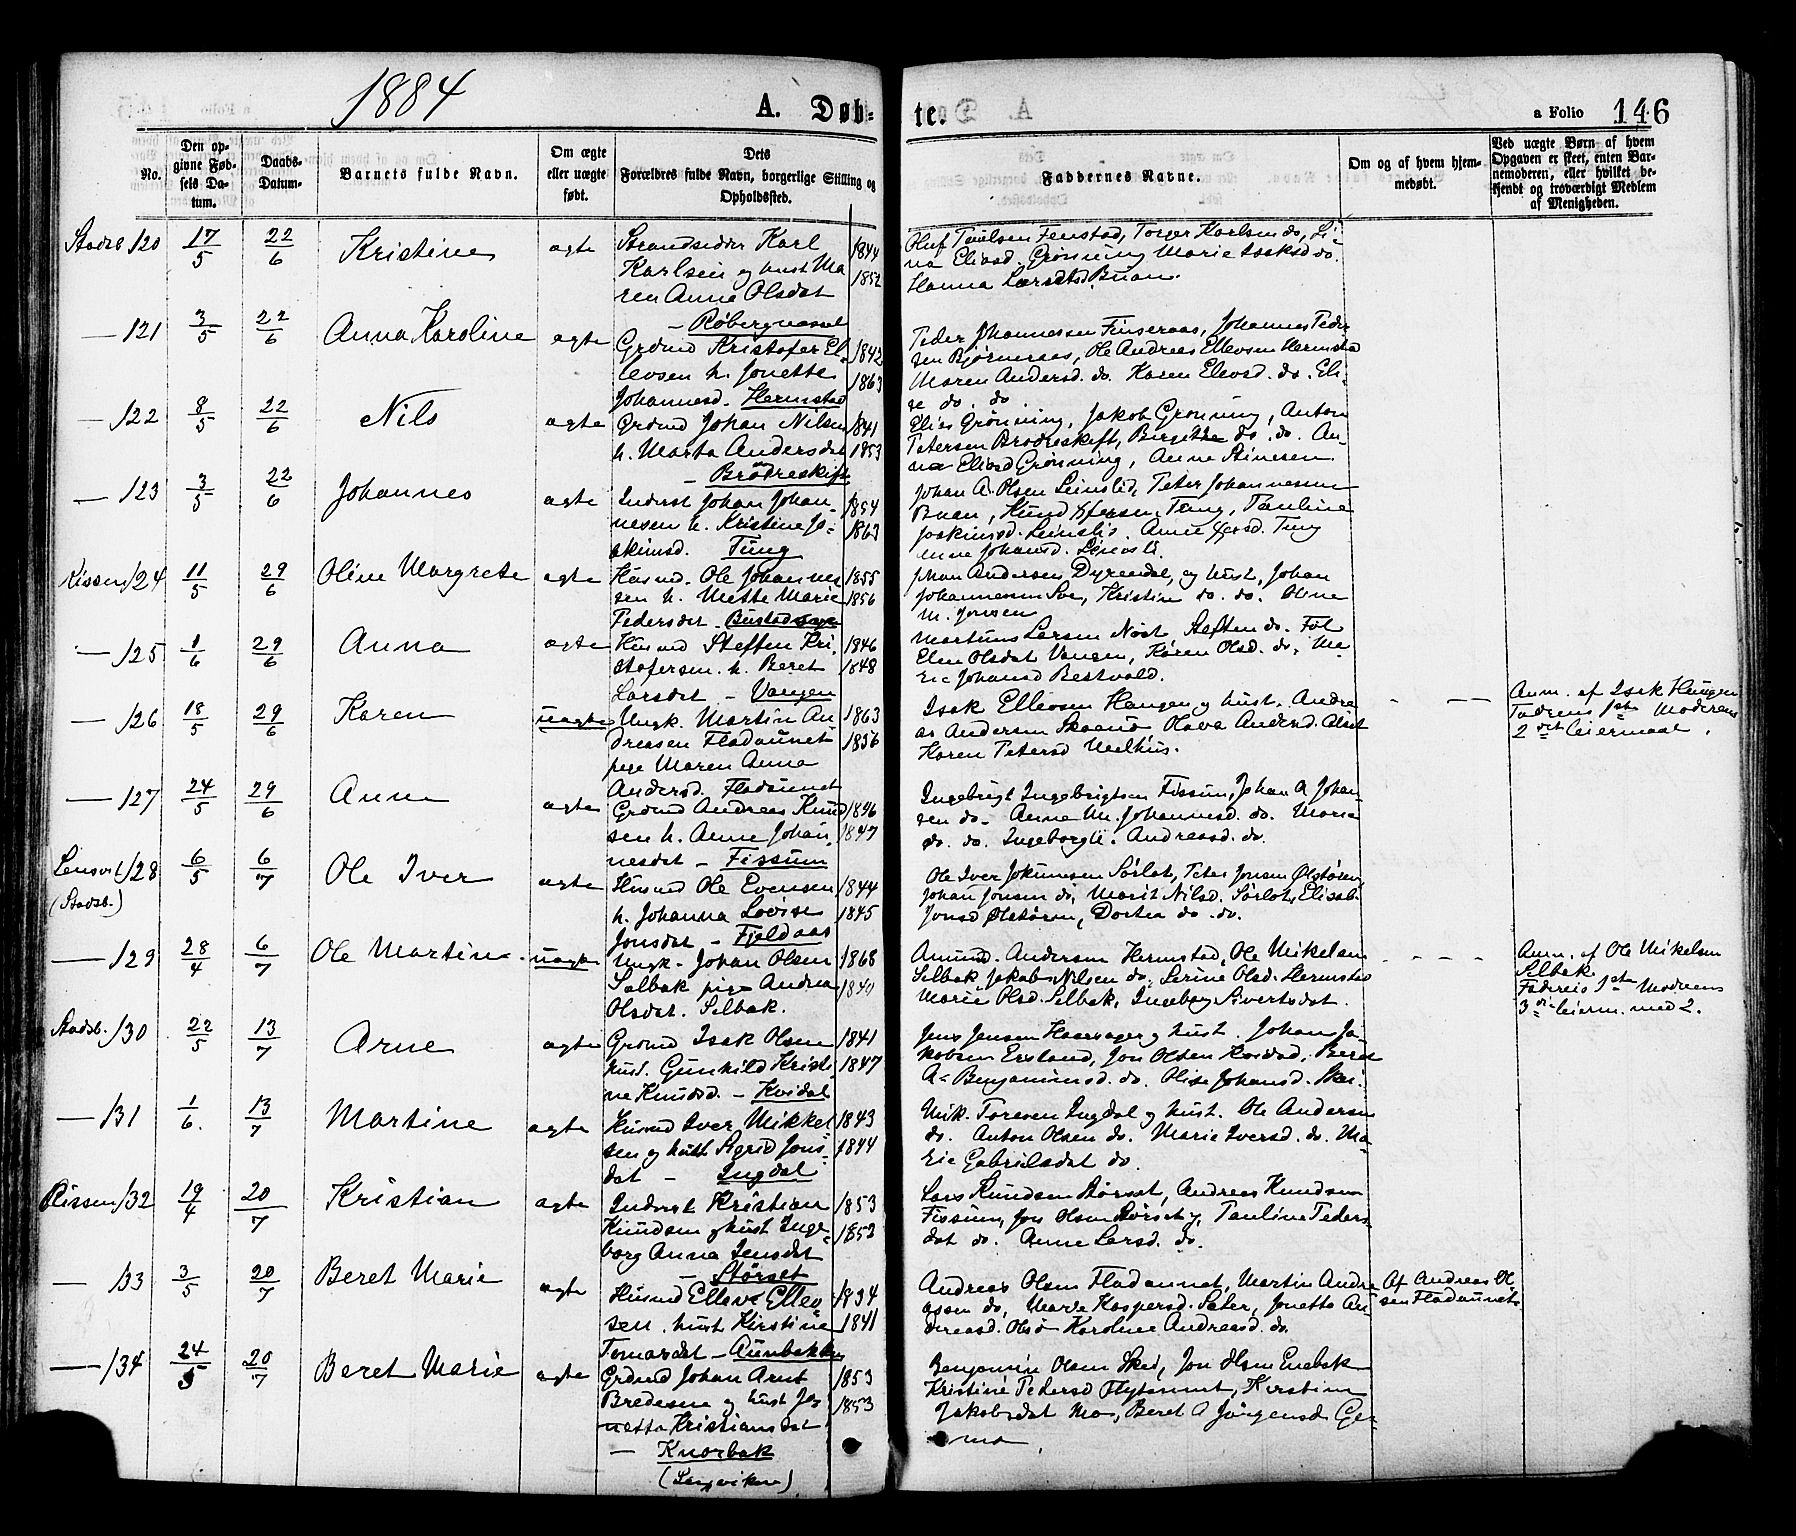 1884
A. Døb-
te.
a Folio 146
No.
Den op-
givne Fød-
sels Da-
tum.
Daabs-
Datum.
Barnets fulde Navn.
Om ægte
eller uægte
født.
Dets
Forældres fulde Navn, borgerlige Stilling og
Opholdssted.
Faddernes Navne.
Om og af hvem hjem-
medøbt.
Ved uægte Børn af hvem
Opgaven er skeet, enten Bar-
nemoderen, eller hvilket be-
kjendt og troværdigt Medlem
af Menigheden.
Stadsb. 120 17/5 22/6 Kristine ægte
Strandsidder Karl 1844
Karlsen og hust Ma 1852
ren Anna Olsdat
- Røbergvassl
Oluf Paulsen Fenstad, Torger Karlsen do, Li-
na Eliasd. Grønning Marie Isaksd do.
Hanna Larsdtd Buan.
— 121 3/5 22/6 Anna Karoline ægte
Grdmd Kristofer El- 1842
levsen h. Jonette 1863
Johannesd. Hermstad
Peder Johannessen Finseraas, Johannes Peder
sen Bjørneraas, Ole Andreas Ellevsen Hermstad
Maren Andersd. do. Karen Elevsd. do. Eli-
se do. do.
— 122 8/5 22/6 Nils ægte
Grdmd Johan Nilsen 1841
h. Marta Andersdat 1853
- Brødreskift
Elias Grønning, Jakob Grønning, Anton
Petersen Brødreskift, Birgitte do. do. An-
na Eliasd Grønning, Anne Stinesen
— 123 3/5 22/6 Johannes ægte
Inderst Johan Johan- 1854
nesen h. Kristine Jo- 1863
akimsd. Tung
Johan A. Olsen Leinslid, Peter Johannessen
Buan, Tung, Pauline
Joakimsd. Leinsli. Anne Tung
Johansd. Leinsli.
Rissen 124 11/5 29/6 Oline Margrete ægte
Husmd. Ole Johannes 1855
sen h. Mette Marie 1856
Pedersdet - Bustad
Johan Andersen Dyrendal, og hust, Johan
Johannessen Soe, Kristine do. do. Oline
M. Jonsen
— 125 1/6 29/6 Anna ægte
Husmd Steffen Kri- 1846
stofersen. h. Beret 1848
Larsdet - Vangen
Martinus Larsen Nøst, Steffen do.
Elen Olsdat Vangen, Karen Olsd. do. Ma
rie Johansd Bestvold.
— 126 18/5 29/6 Karen uægte
Ungk. Martin An 1863
dreasen Fladaunet 1856
pige Maren Anna
Andersd. Fladaunet
Isak Ellevsen Haugen og hust. Andre
as Andersen Skaund Olava Andersd. Alset
Karen Petersd Melhus.
- — —
Anm. af Isak Haugen
Fadrens 1ste Moderens
2det leiermaal.
— 127 24/5 29/6 Anne ægte
Grdmd Andreas Knud 1846
sen h. Anne Johan- 1847
nesdet - Fissum
Ingebrigt Ingebrigtsen Fissum, Johan A Johan-
sen do. Anne M. Johannesd. do. Marie
do. do. Ingeborg Andreasd. do.
Lensv. 128 6/5 6/7 Ole Iver ægte
(Stadsb.)
Husmd Ole Evensen 1844
h. Johanna Lovise 1845
Jonsdat - Fjeldaas
Ole Iver Jokumsen Sørlot, Peter Jonsen Ølstøren
Johan Jonsen do, Marit Nilsd. Sørlot, Elisab.
Jonsd Ølstøren, Dortea do. do.
— 129 28/4 6/7 Ole Martin uægte
Ungk. Johan Olsen 1868
Selbak pige Andrea 1840
Olsdat. Selbak.
Amund. Andersen Hermstad, Ole Mikelsen
Selbak, Jakob Nilsen do, Serine Olsd. Hermstad
Marie Olsd. Selbak, Ingeborg Sivertsdat.
- - - -
Anm. af Ole Mikelsen
Selbak
Faderens 1ste Moderens
3die leierm. med 2.
Stadsb. 130 22/5 13/7 Arne ægte
Grdmd Isak Olsen 1841
hust. Gunhild Kristi- 1847
ne Knudsd. - Kvidal
Jens Jensen Haarvager og hust. Johan Ja-
kobsen Erstand, Jon Olsen Kvidal. Beret
A. Benjaminsd. do. Olise Johansd. Skei.
— 131 1/6. 13/7 Martine ægte
Husmd Iver Mikkel 1843
sen og hust Sigrid Jons- 1844
dat - Ingdal
Mik. Toresen Ingdal og hust. Ole Andersen
do. Anton Olsen do. Marie Iversd. do. Ma-
rie Gabrielsdat do.
Rissen 132 19/4 20/7 Kristian ægte
Inderst Kristian 1853
Knudsen og hust Inge- 1853
borg Anna Jensdat
- Størset
Lars Knudsen Størset, Andreas Knudsen
Fissum, Jon Olsen Størset, Pauline Peders-
dat do. Anne Larsd. do.
— 133 3/5 20/7 Beret Marie ægte
Husmd Ellev Ellev 1834
sen. hust Kirstine 1841
Tomasdet - Aunbakken
Andreas Olsen Fladaunet, Martin Andre
assen do, Marie Kaspersd. Sæter, Jonetta An
dreasd. Olsø Karoline Andreasd. do.
Af Andreas Ol
sen Fladaunet
— 134 24/5 20/7 Beret Marie ægte
Grdmd Johan Arnt 1853
Bredesen og hust Jo- 1853
netta Kristiansdat
- Knorbak
(Lensviken)
Benjamin Olsen Skei, Jon Olsen Enebak
Kristine Pedersd Flytaunet, Kirstine
Jakobsdat Mo, Beret A Jørgensd. Ger-
mo.